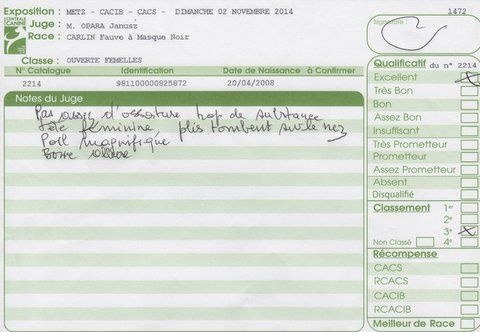 Exposition : METZ - CACIB - CACS - DIMANCHE 02 NOVEMBRE 2014
1472
CENTRALE
CANINE
Juge : M. OPARA Janusz
Signature :
Race : CARLIN Fauve à Masque Noir
Classe : OUVERTE FEMELLES
N° Catalogue Identification Date de Naissance à Confirmer
2214 981100000825872 20/04/2008
Notes du Juge
Pas assez d'ossature trop de substance
Tête féminine, plis tombent sur le nez
Poil magnifique
Bonne
Qualificatif du n° 2214
Excellent X
Très Bon
Bon
Assez Bon
Insuffisant
Très Prometteur
Prometteur
Assez Prometteur
Absent
Disqualifié
Classement 1er
2e
3e X
Non Classé 4e
Récompense
CACS
RCACS
CACIB
RCACIB
Meilleur de Race